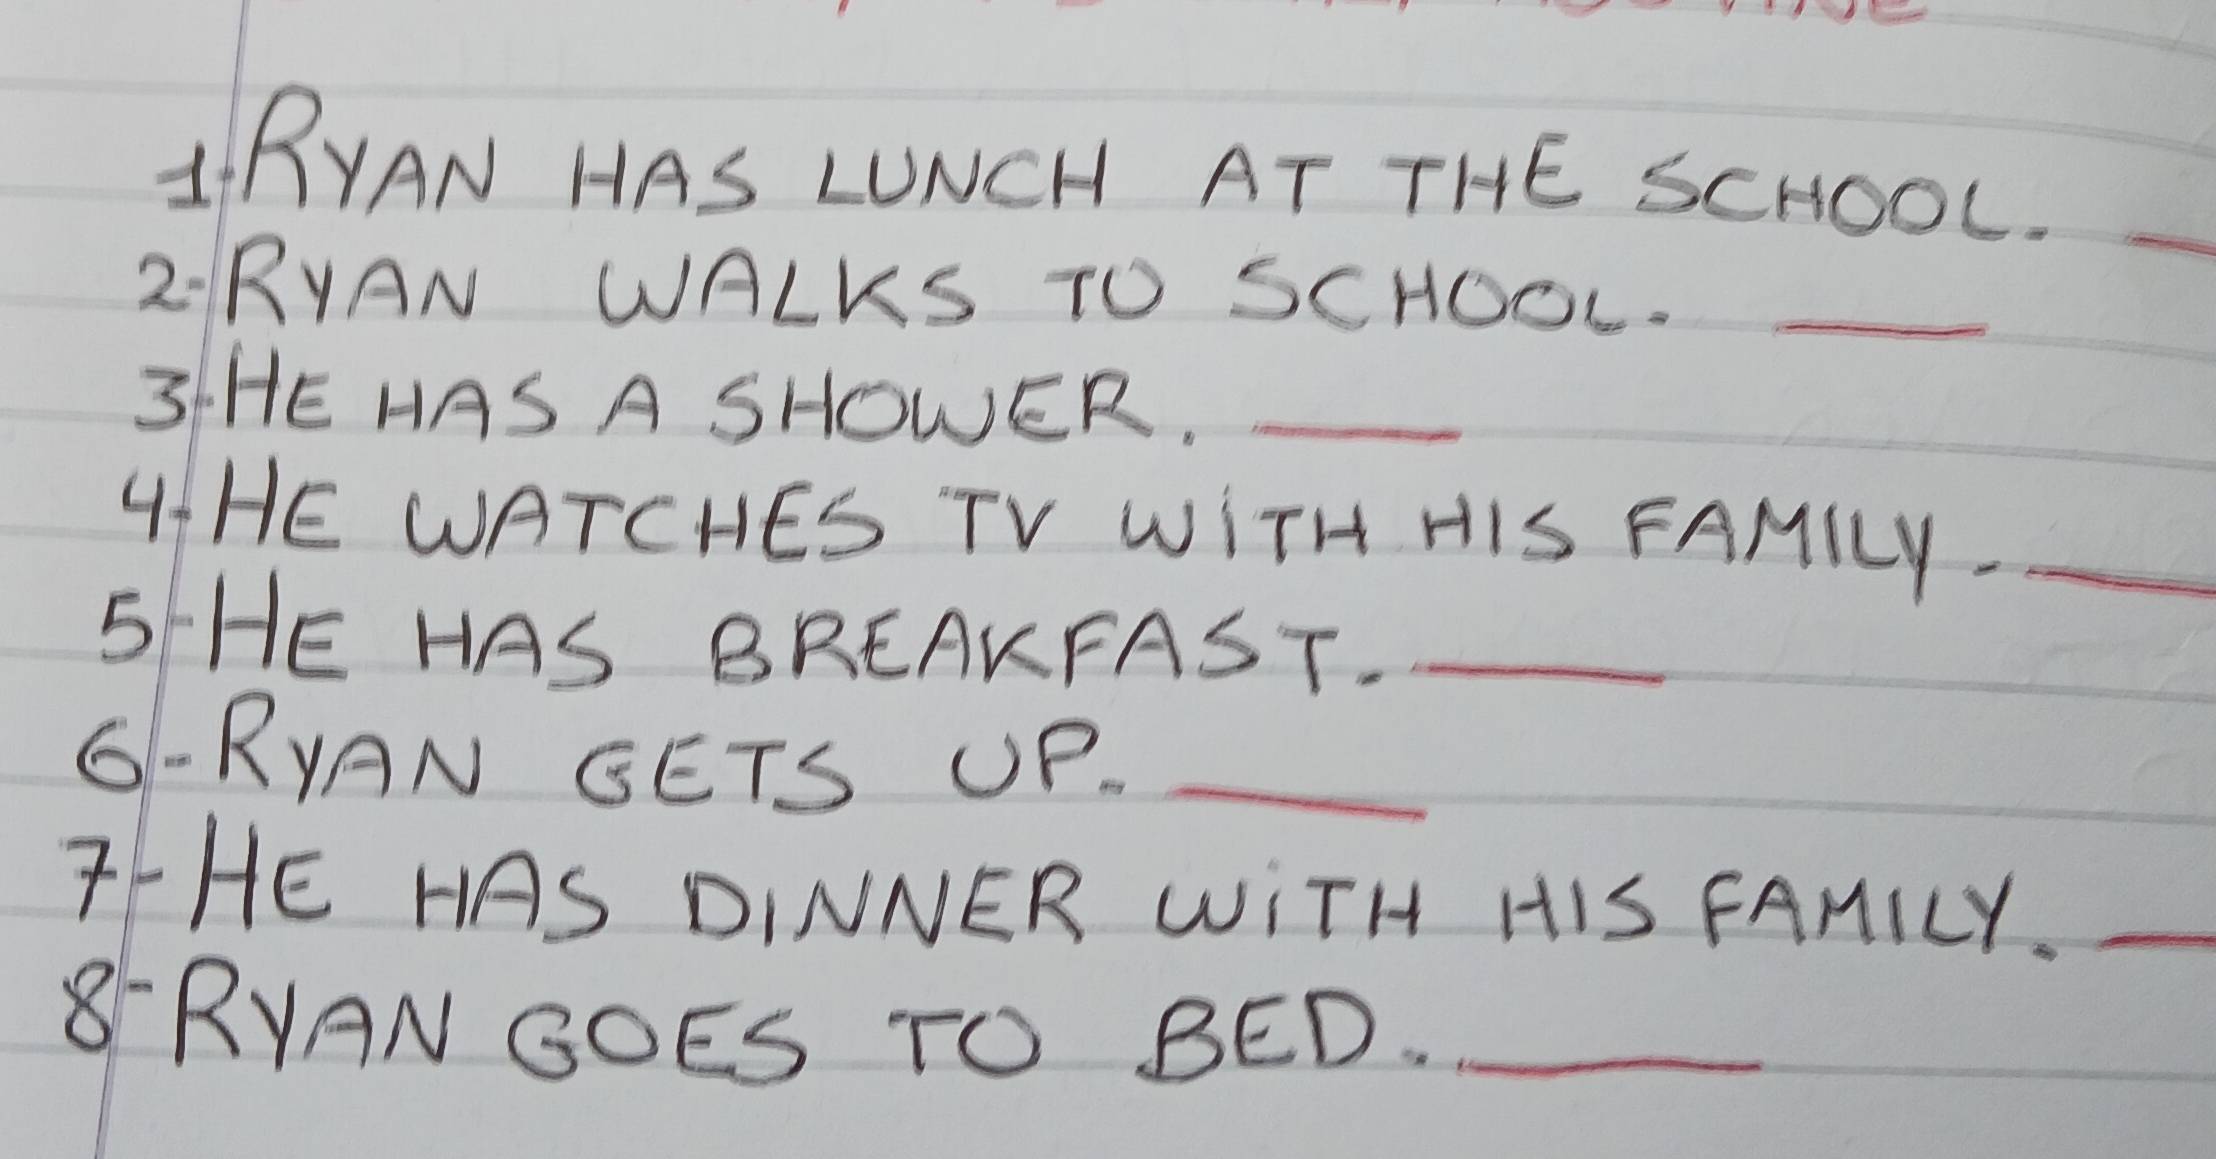 ROUTINE
1-RYAN HAS LUNCH AT THE SCHOOL.
2-RYAN WALKS TO SCHOOL.
3-HE HAS A SHOWER.
4-HE WATCHES TV WITH HIS FAMILY.
5-HE HAS BREAKFAST.
6-RYAN GETS UP.
7-HE HAS DINNER WITH HIS FAMILY.
8-RYAN GOES TO BED.